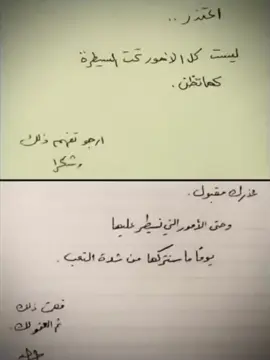 اعتذر ..
ليست كل الامور تحت السيطرة
كما تظن .
ارجو تفهم ذلك
وشكرا
عذرك مقبول .
وحتى الأمور التي نسيطر عليها
يومًا ما سنتركها من شدة التعب .
قلت ذلك
ثم العفو لك .